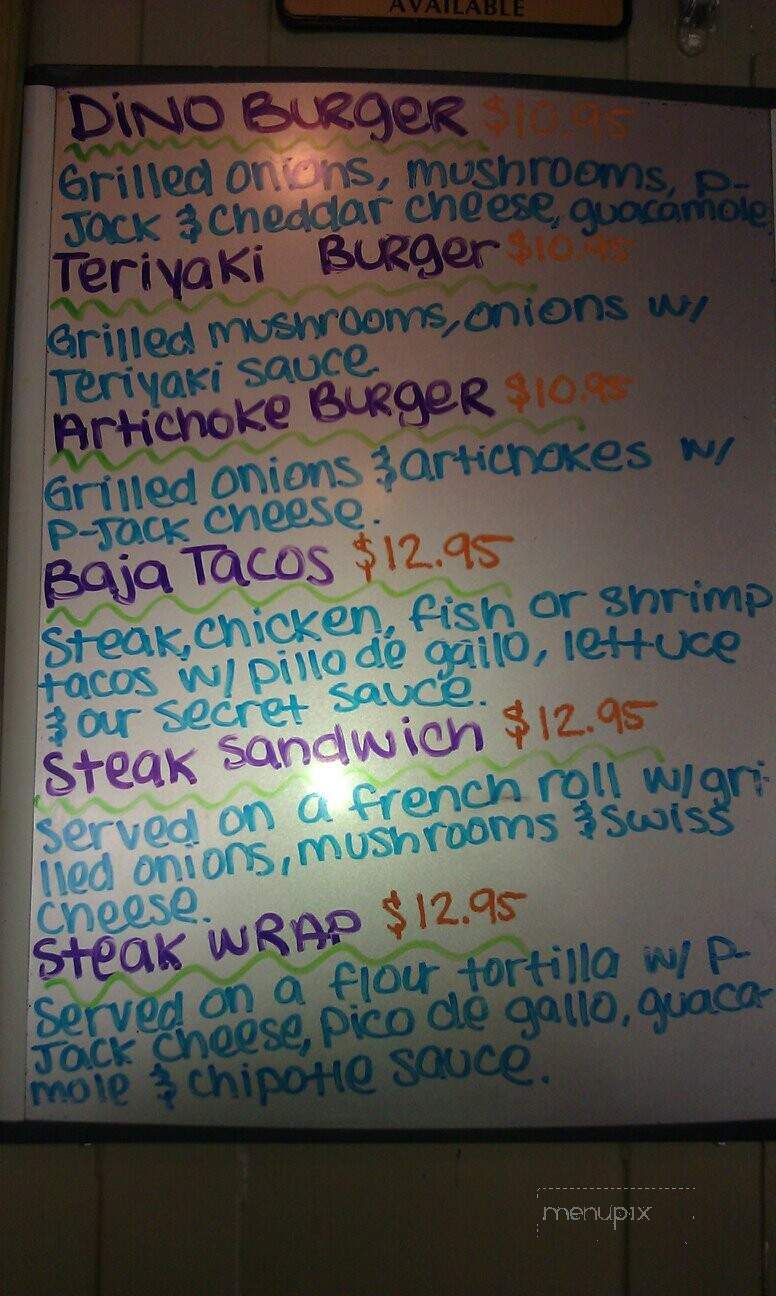 AVAILABLE
DiNO BURgeR $10.95
Grilled onions, mushrooms, p-
Jack & cheddar cheese, guacamole
Teriyaki BURgeR $10.95
Grilled mushrooms, onions w/
Teriyaki sauce
Artichoke BURgeR $10.95
Grilled onions & artichokes w/
P-Jack cheese.
Baja Tacos $12.95
Steak, chicken, fish or shrimp
tacos w/ pillo de gallo, lettuce
& our secret sauce.
Steak Sandwich $12.95
Served on a french roll w/ gri-
lled onions, mushrooms & swiss
cheese.
Steak WRAP $12.95
Served on a flour tortilla w/ P-
Jack cheese, pico de gallo, guaca-
mole & chipotle sauce.
menupix